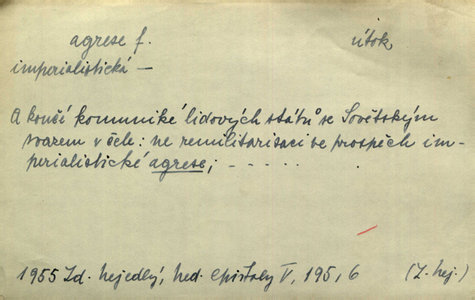 agrese f. útok
imperialistická —
A končí komuniké lidových států se Sovětským
svazem v čele: ne remilitarisaci ve prospěch im-
perialistické agrese; - - - - - .
1955 Zd. Nejedlý, Ned. epištoly V, 195, 6 (Z. Nej.)